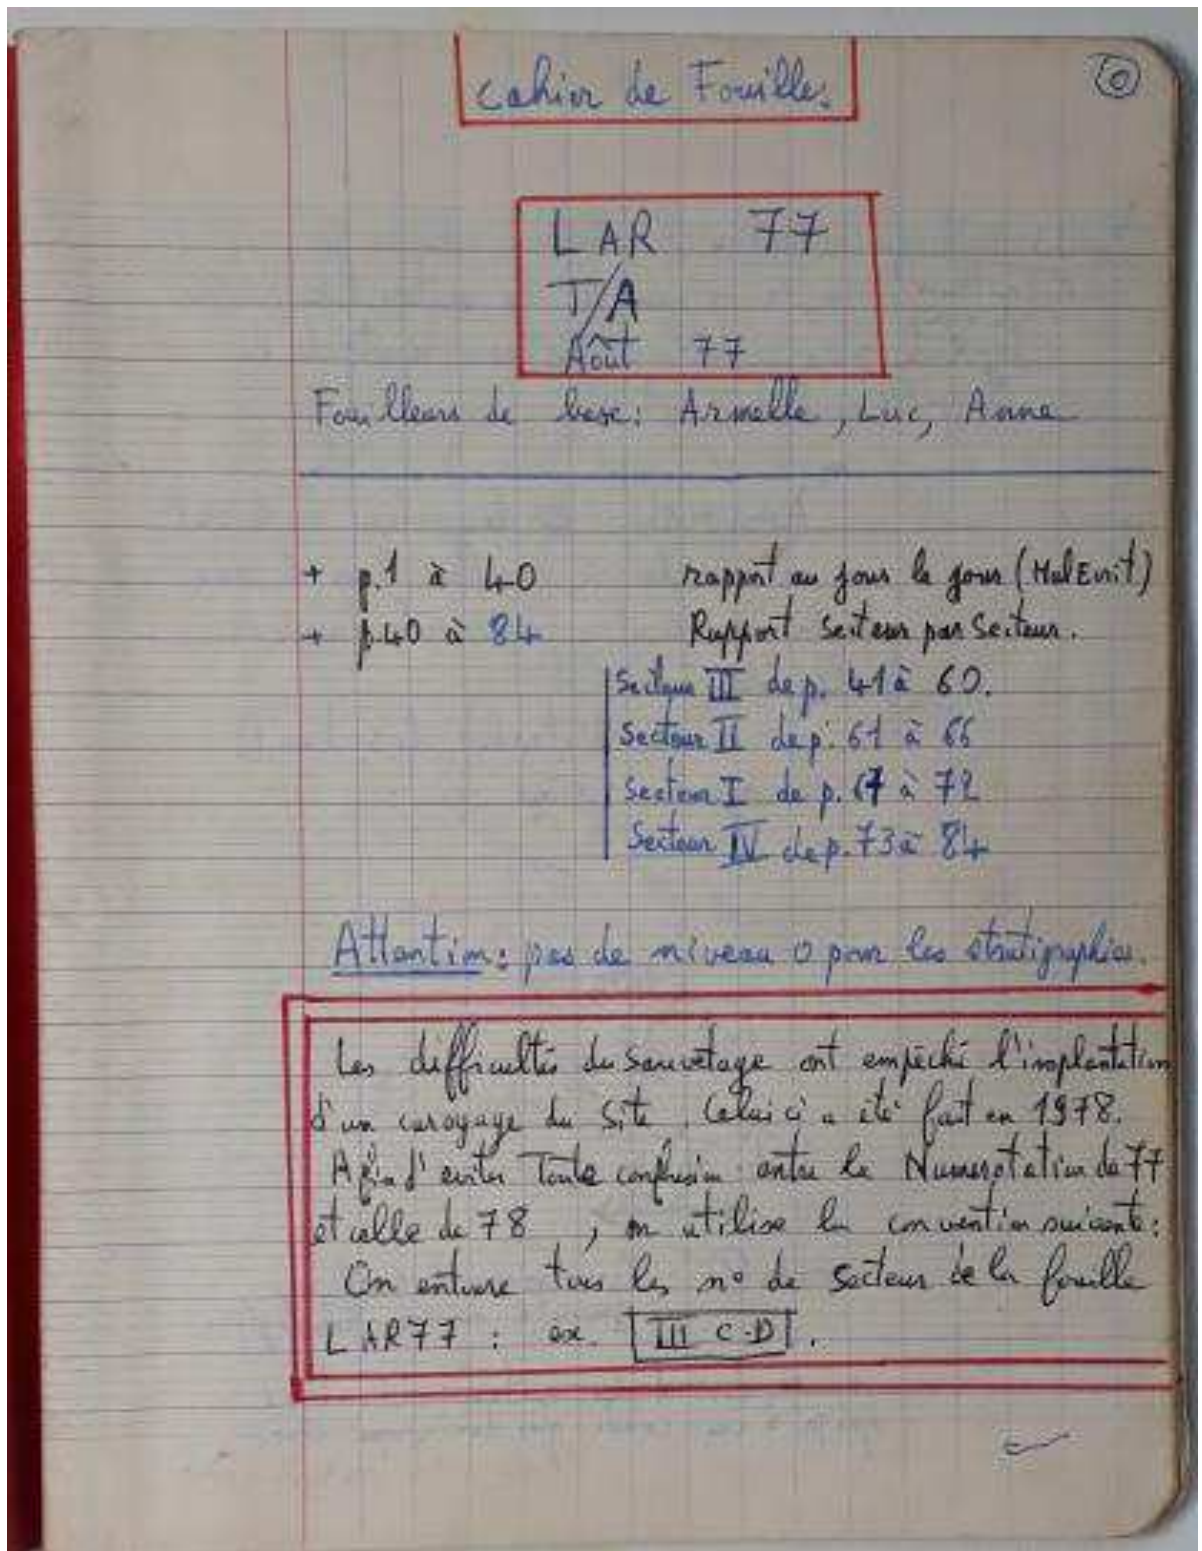 cahier de Fouilles.
0
LAR 77
T/A
Août 77
Fouilleurs de base: Armelle, Luc, Anne
+ p.1 à 40 rapport au jour le jour (Mal Ecrit)
+ p.40 à 84 Rapport Secteur par Secteur.
Secteur III de p. 41 à 60.
Secteur II de p. 61 à 66
Secteur I de p. 67 à 72
Secteur IV de p. 73 à 84
Attention: pas de niveau 0 pour les stratigraphies.
Les difficultés du sauvetage ont empêché l'implantation
d'un caroyage du Site. Celui ci a été fait en 1978.
Afin d'eviter Toute confusion entre la Numerotation de 77
et celle de 78, on utilise la convention suivante:
On entoure tous les n° de secteur de la fouille
LAR77 : ex. III C-D.